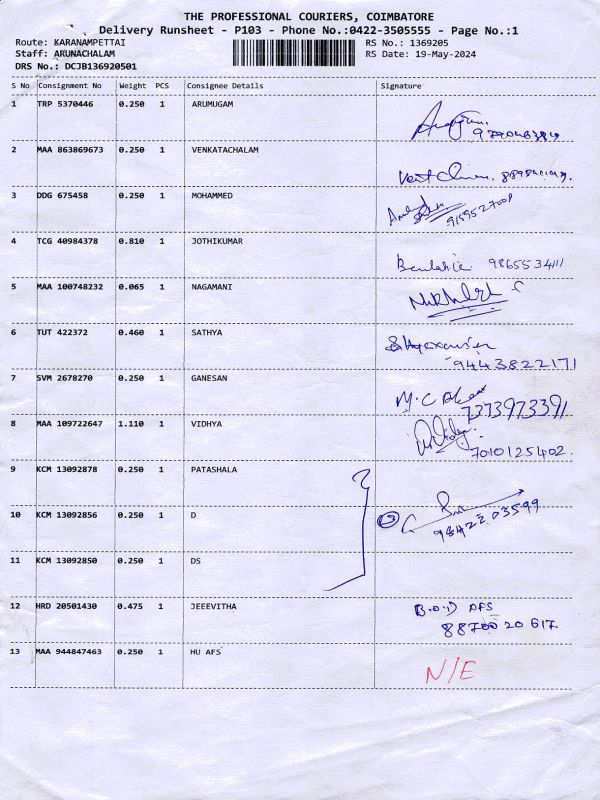 THE PROFESSIONAL COURIERS, COIMBATORE
Delivery Runsheet - P103 - Phone No.:0422-3505555 - Page No.:1
Route: KARANAMPETTAI RS No.: 1369205
Staff: ARUNACHALAM RS Date: 19-May-2024
DRS No.: DCJB136920501
S No Consignment No Weight PCS Consignee Details Signature
1 TRP 5370446 0.250 1 ARUMUGAM
2 MAA 863869673 0.250 1 VENKATACHALAM
3 DDG 675458 0.250 1 MOHAMMED
9159527001
4 TCG 40984378 0.810 1 JOTHIKUMAR
9865534111
5 MAA 100748232 0.065 1 NAGAMANI
6 TUT 422372 0.460 1 SATHYA
9443822171
7 SVM 2678270 0.250 1 GANESAN
M.C
7373973391
8 MAA 109722647 1.110 1 VIDHYA
7010125402.
9 KCM 13092878 0.250 1 PATASHALA
10 KCM 13092856 0.250 1 D
11 KCM 13092850 0.250 1 DS
12 HRD 20501430 0.475 1 JEEEVITHA B.O.D AFS
88700 20 617.
13 MAA 944847463 0.250 1 HU AFS N/E